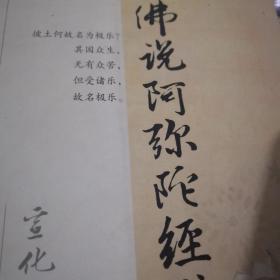 彼土何故名为极乐？
其国众生，
无有众苦，
但受诸乐，
故名极乐。
佛说阿弥陀经
宣化